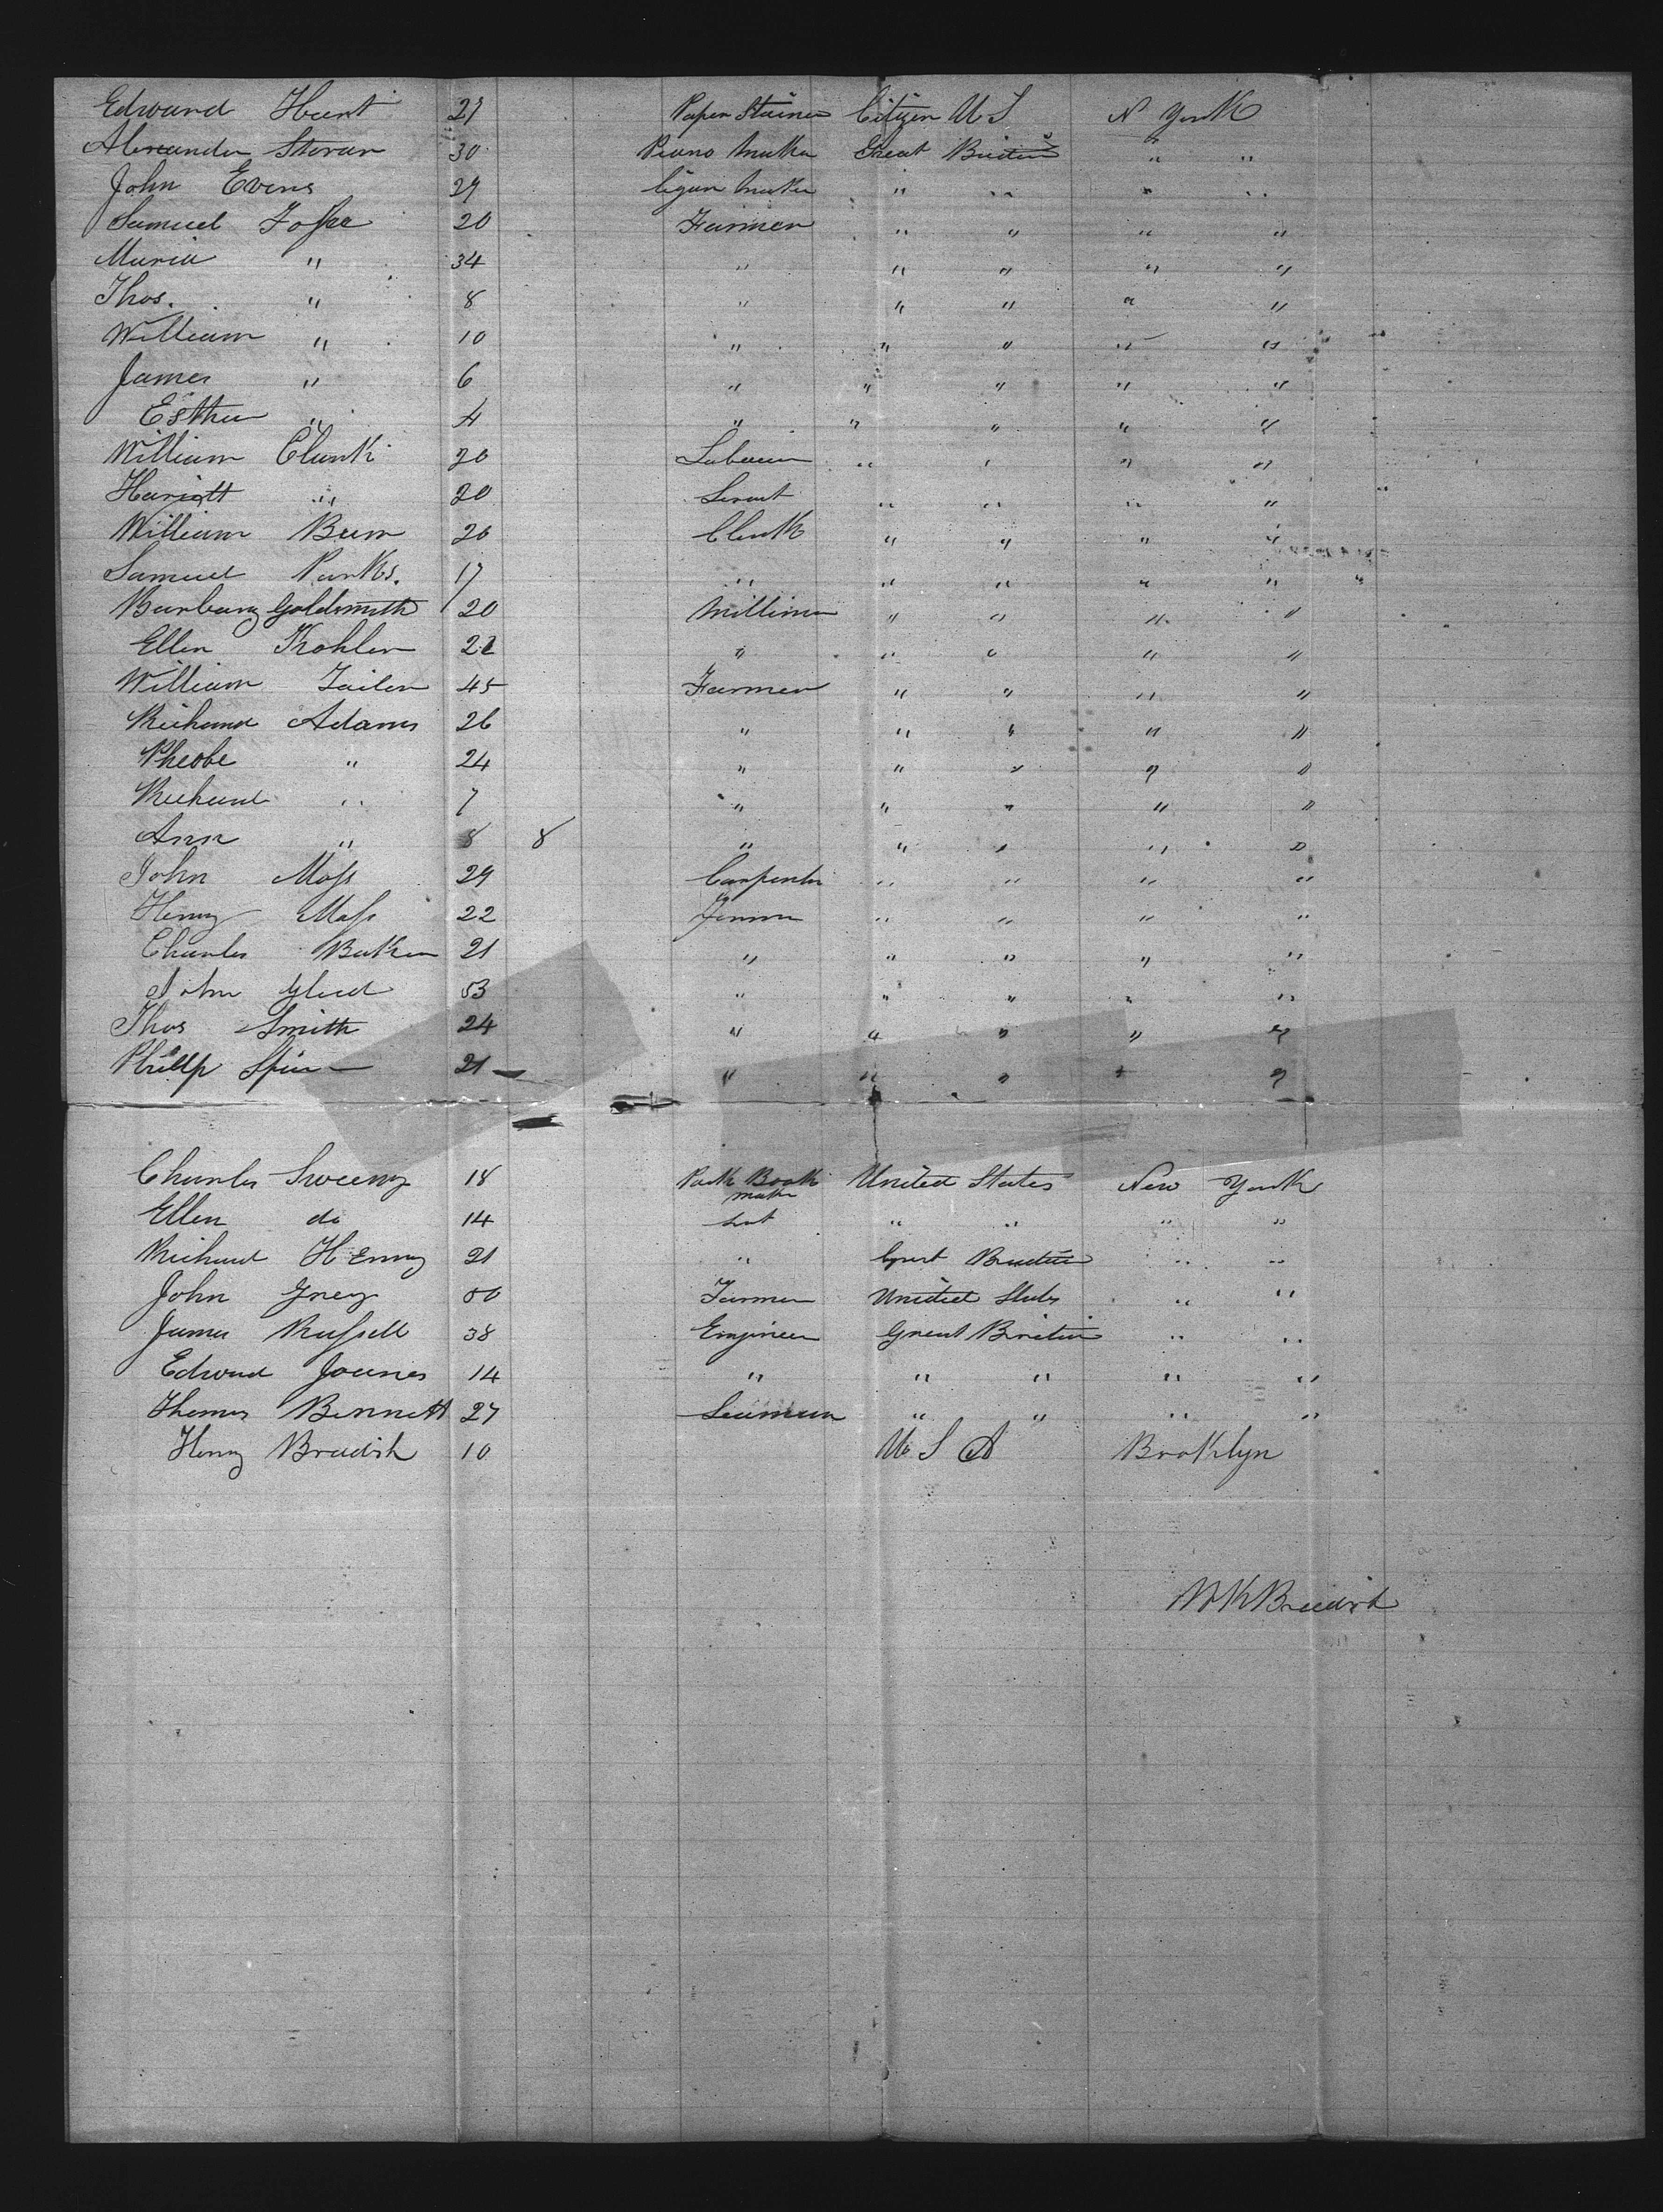 Edward Hunt 27 Paper Stainer Citizen U S N York
Alexander 30 Piano Maker Great Britain " "
John Evens 29 Cigar Maker " " " "
Samuel 20 Farmer " " " "
Maria " 34 " " " " "
Thos. " 8 " " " " "
William " 10 " " " " "
James " 6 " " " " "
Esther " 4 " " " " "
William Clunk 20 " " " "
Hariott " 20 Servt " " " "
William 20 Clerk " " " "
Samuel Parks. 17 " " " " "
Goldsmith 20 Milliner " " " "
Ellen Kohler 22 " " " " "
William Tailor 45 Farmer " " " "
Richard Adams 26 " " " " "
Pheobe " 24 " " " " "
Richard " 7 " " " " "
Ann " 8 8 " " " " "
John Moss 29 Carpenter " " " "
Henry Moss 22 " " " "
Charles Baker 21 " " " " "
John 53 " " " " "
Thos Smith 24 " " " " "
Phillip 21 " " " " "
Charles Sweeny 18 Book United States New York
maker
Ellen do 14 " " " "
Richard Henny 21 " Great Britain " "
John Grey 50 Farmer United States " "
James Russell 38 Engineer Great Britain " "
Edward Joanes 14 " " " " "
Thomas Bennett 27 Seaman " " " "
Henry Bradish 10 U S A Broklyn
Bradish